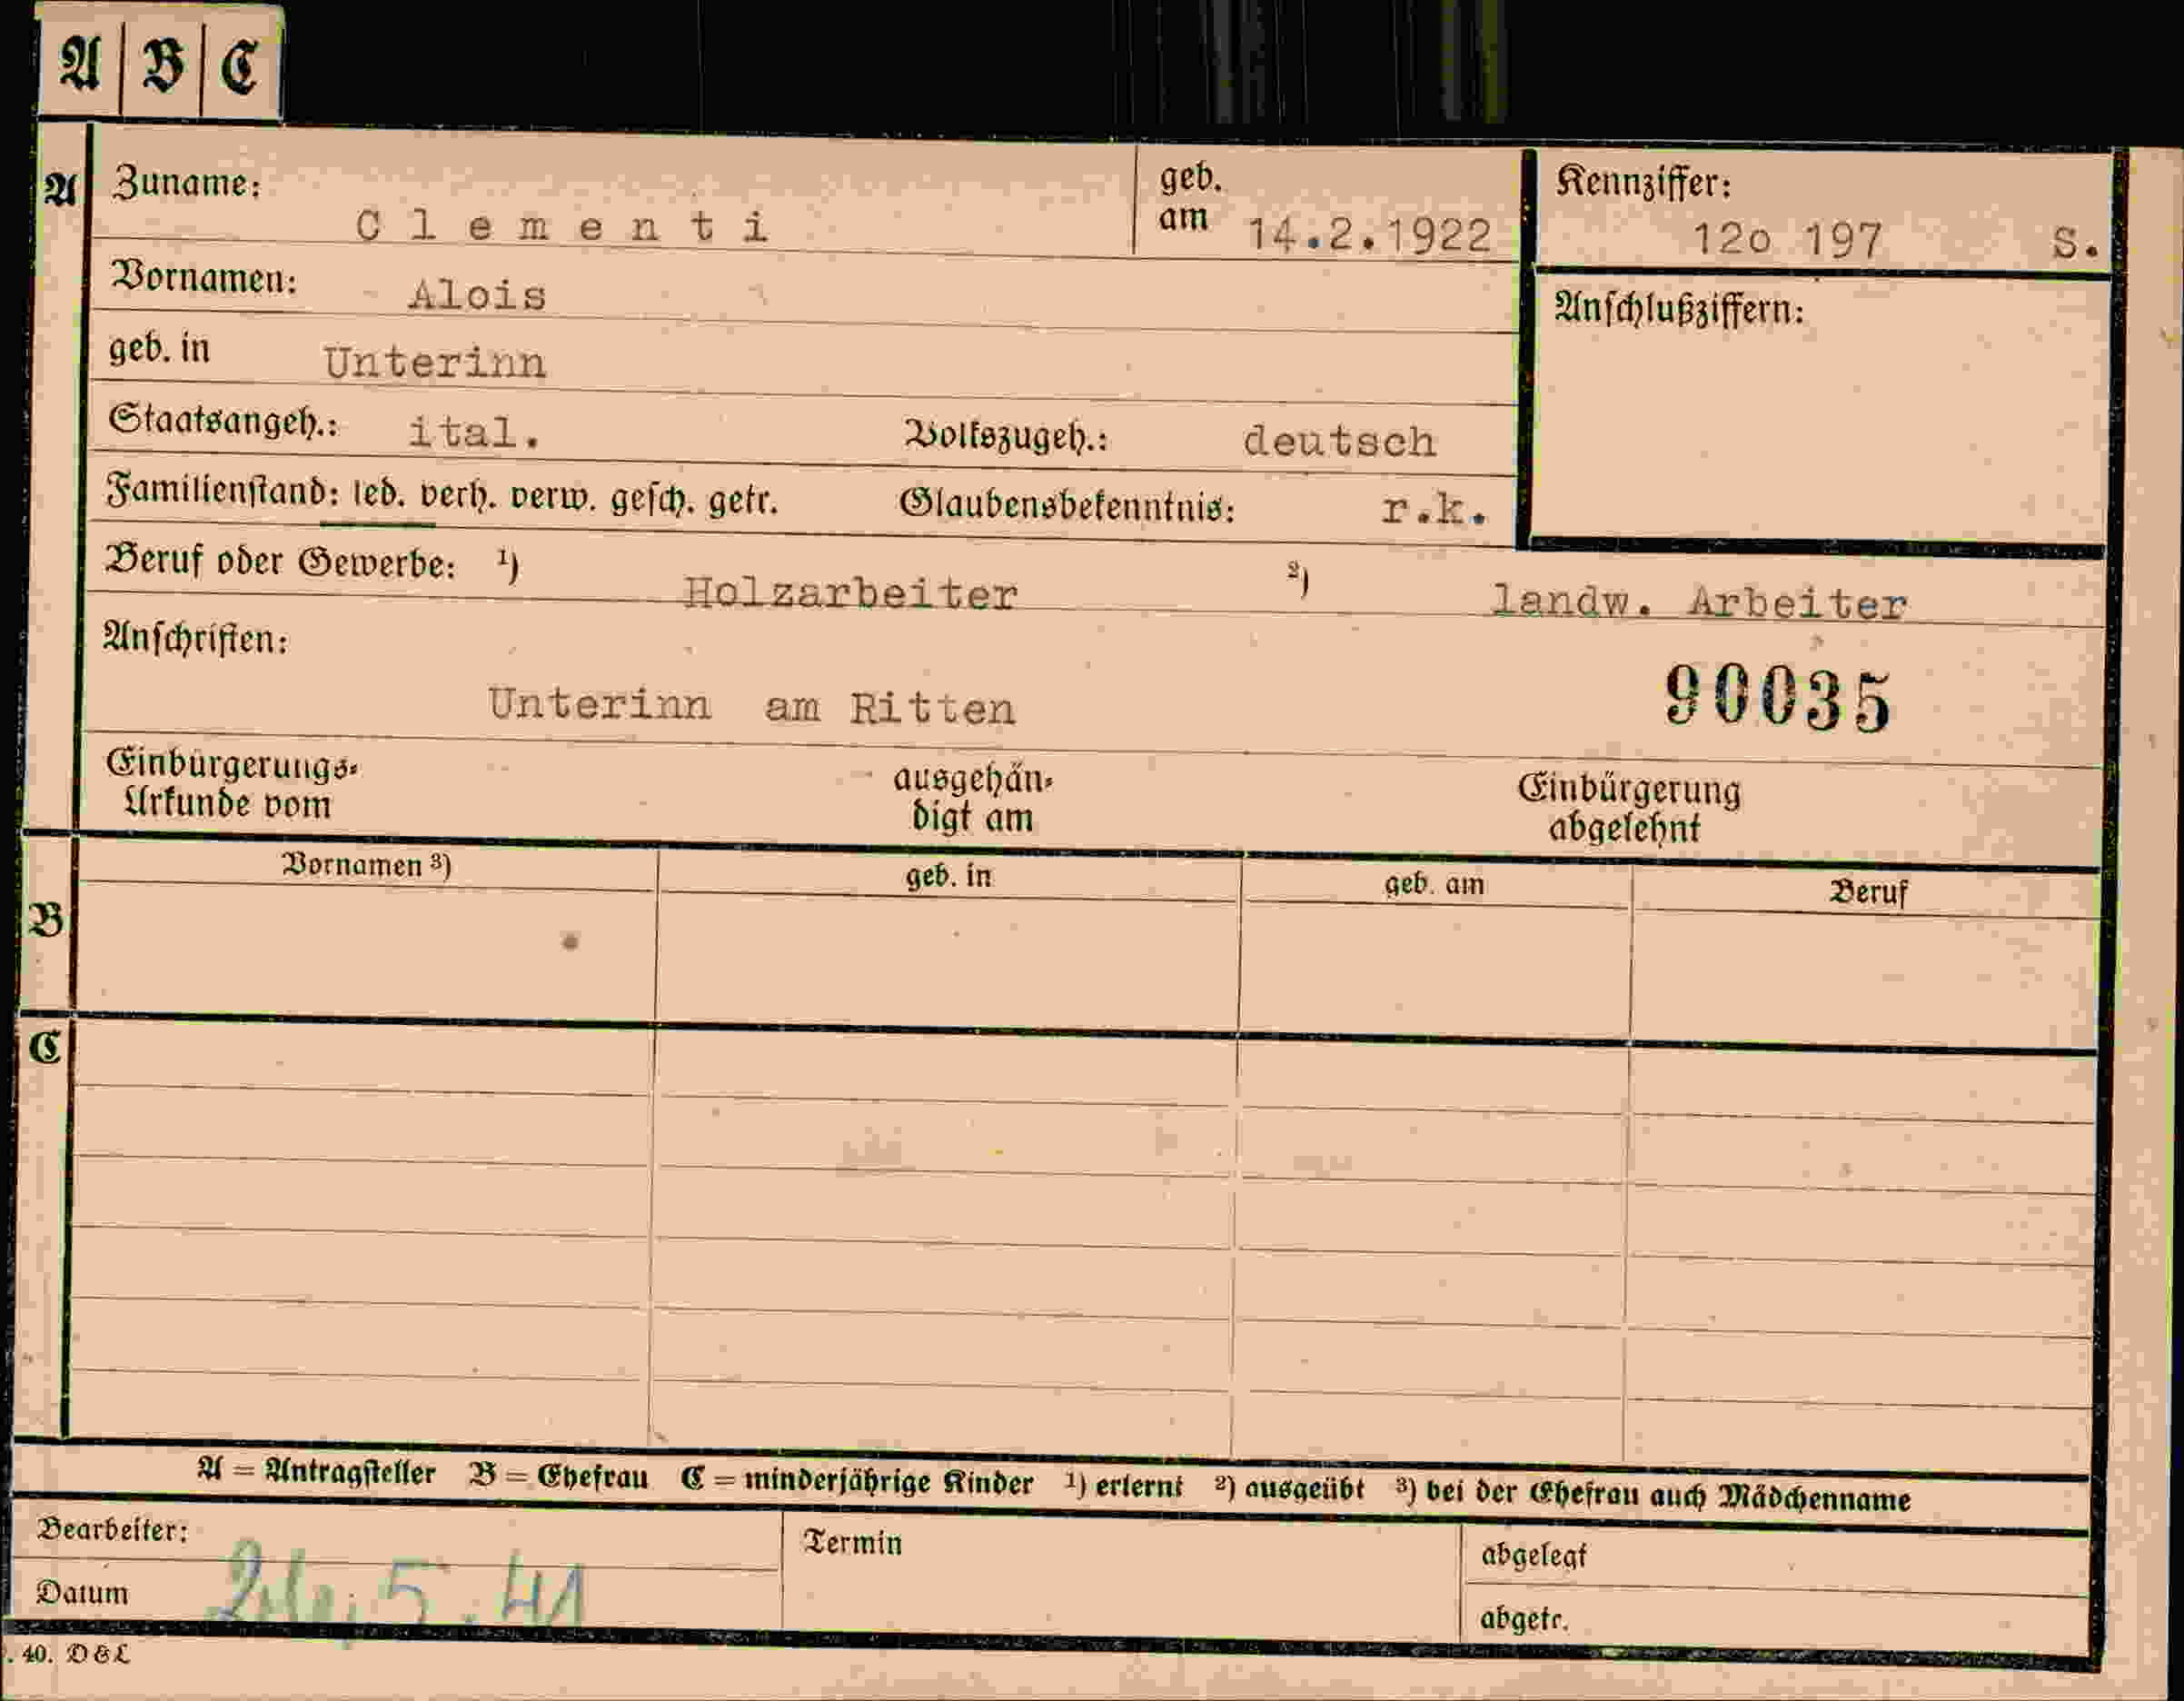 A B C
A Zuname: Clementi geb. am 14.2.1922 Kennziffer: 12o 197 S.
Vornamen: Alois Anschlußziffern:
geb. in Unterinn
Staatsangeh.: ital. Volkszugeh.: deutsch
Familienstand: led. verh. verw. gesch. getr. Glaubensbekenntnis: r.k.
Beruf oder Gewerbe: 1) Holzarbeiter 2) landw. Arbeiter
Anschriften:
Unterinn am Ritten 90035
Einbürgerungs- ausgehän- Einbürgerung
Urkunde vom digt am abgelehnt
Vornamen 3) geb. in geb. am Beruf
B
C
A = Antragsteller B = Ehefrau C = minderjährige Kinder 1) erlernt 2) ausgeübt 3) bei der Ehefrau auch Mädchenname
Bearbeiter: Termin abgelegt
Datum 5. 41 abgetr.
. 40. D & L